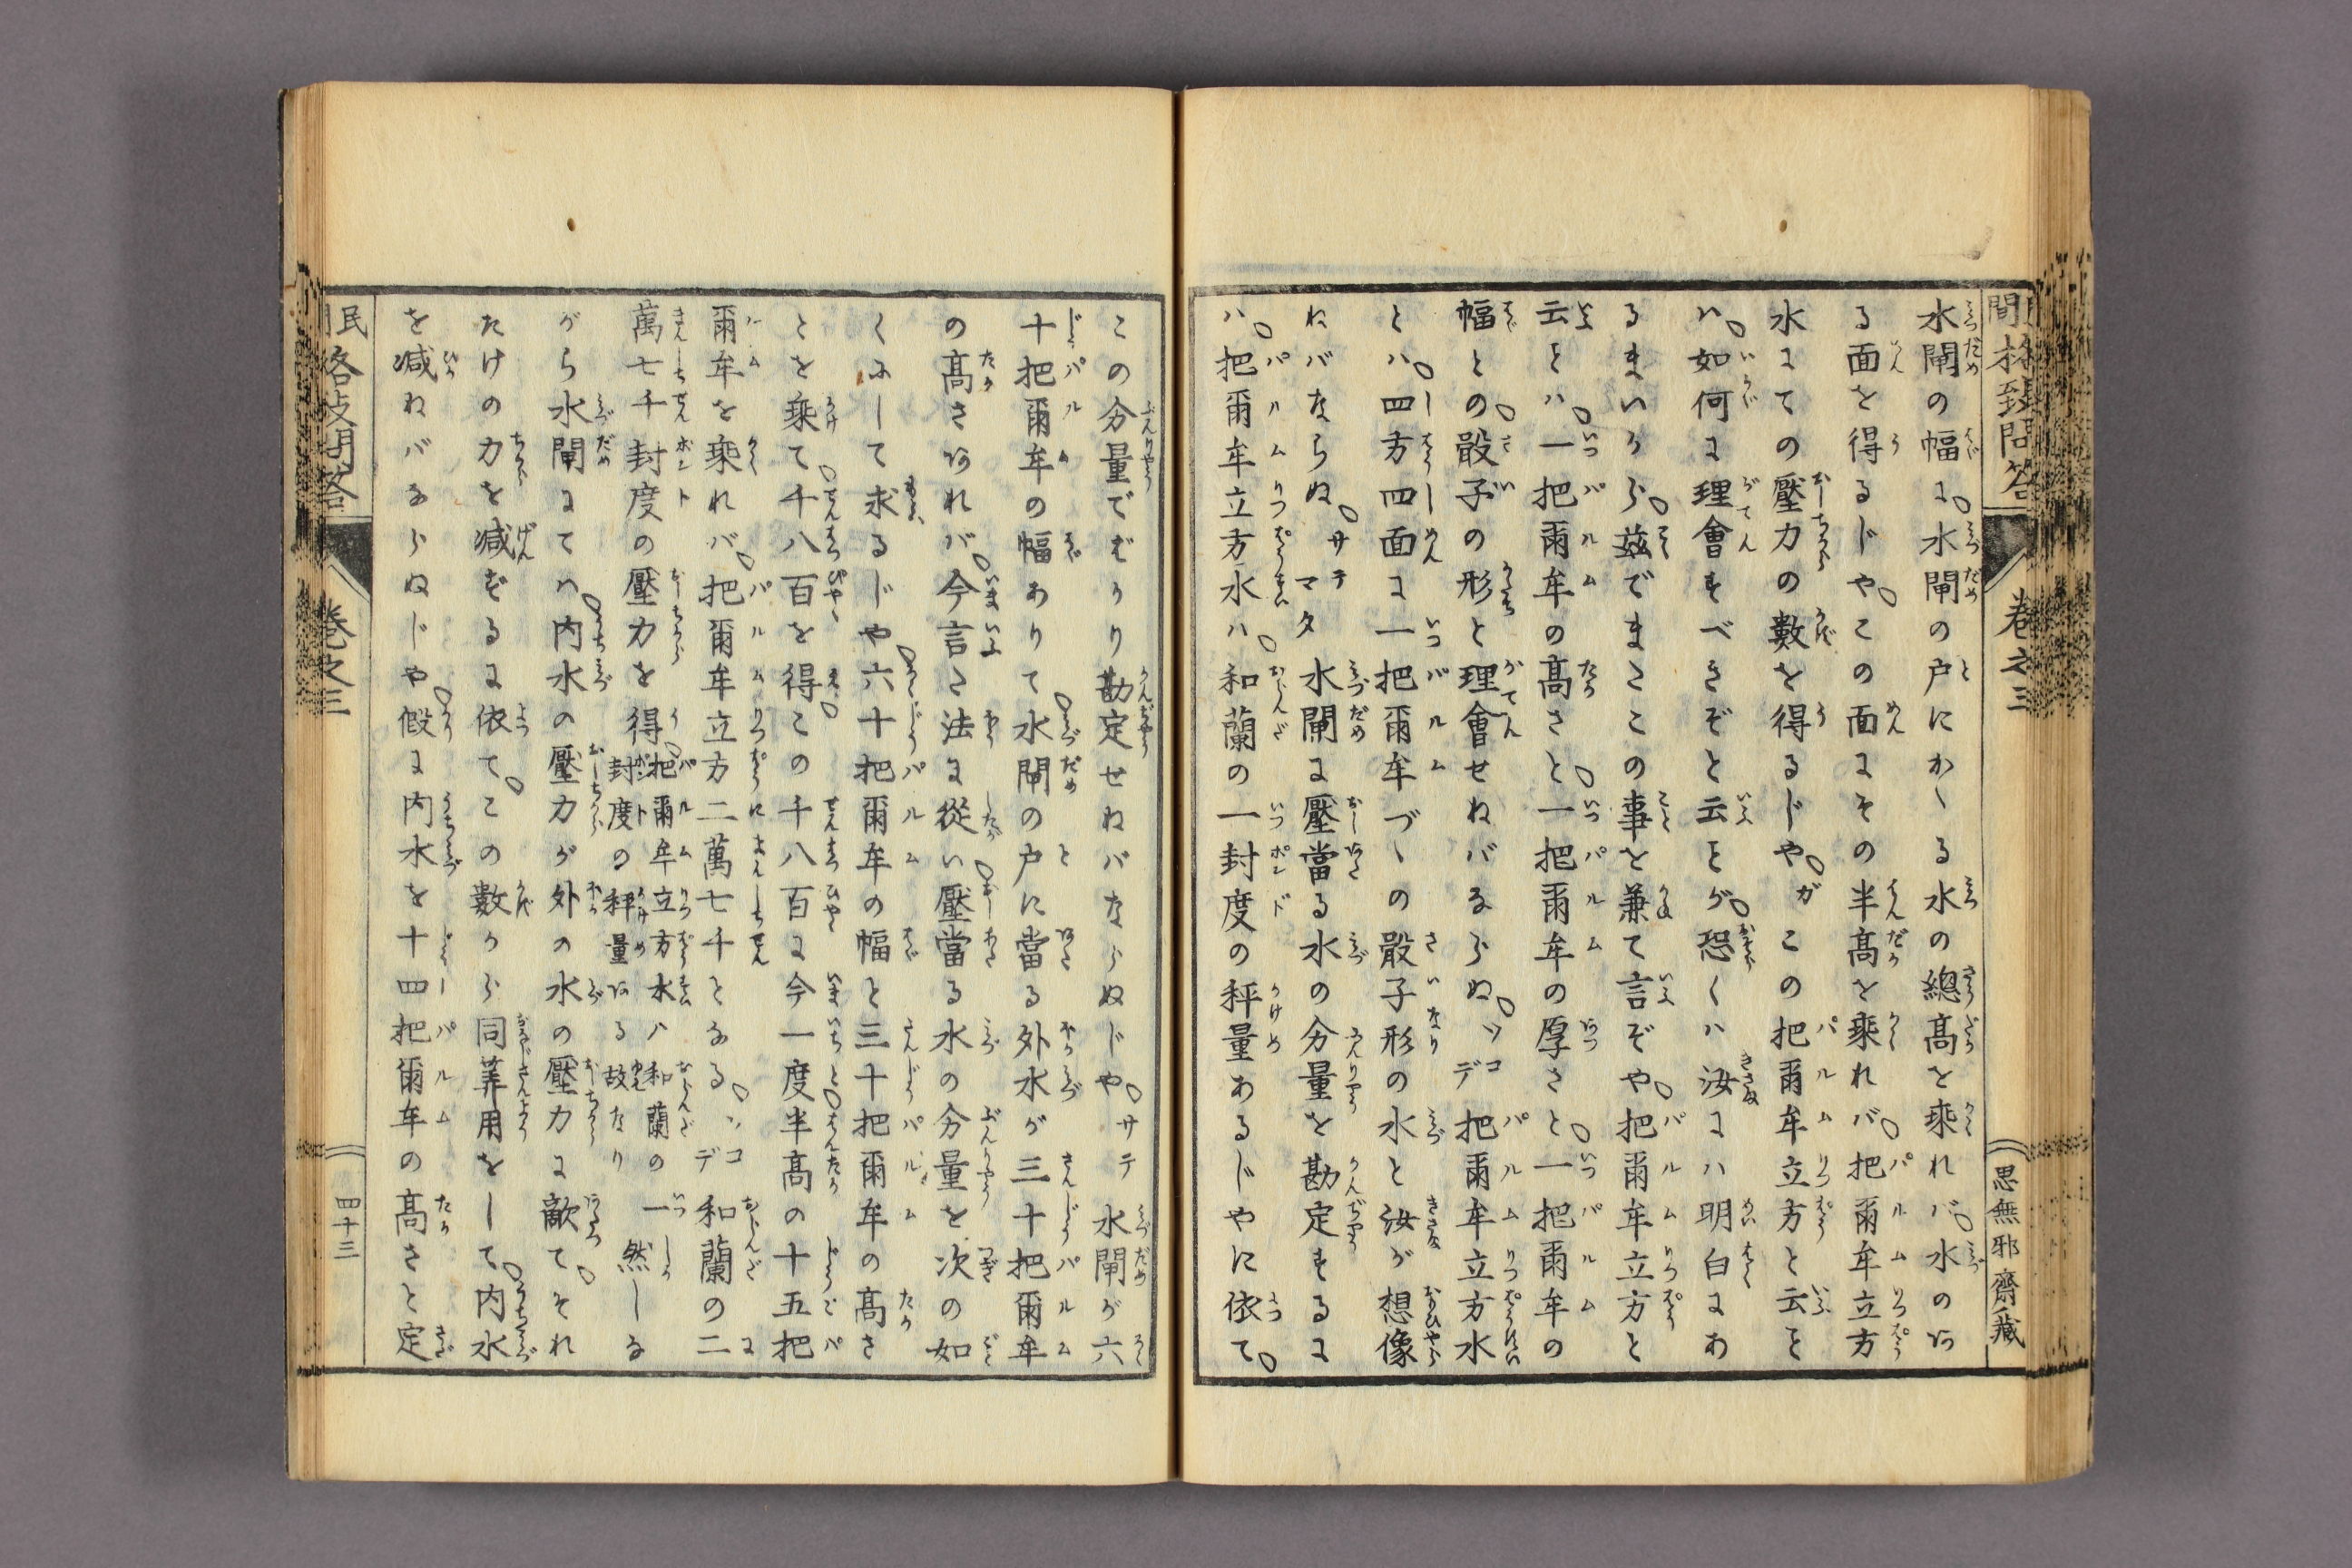 水閘の幅に水閘の戸にかゝる水の總高を乘れバ水のあ
る面を得るじやこの面にその半高を乘れバ把爾牟立方
水にての壓力の數を得るじやガこの把爾牟立方と云を
ハ如何に理會すべきぞと云とが恐くハ汝にハ明白にあ
るまいから茲でまさこの事を兼て言ぞや把爾牟立方と
云とハ一把爾牟の高さと一把爾牟の厚さと一把爾牟の
幅との骰子の形と理會せねバならぬソコデ把爾牟立方水
とハ四方四面に一把爾牟づゝの骰子形の水と汝が想像
ねバならぬサテマタ水閘に壓當る水の分量を勘定するに
ハ把爾牟立方水ハ和蘭の一封度の秤量あるじやに依て
この分量でむり勘定せねバならぬじやサテ水閘が六
十把爾牟の幅ありて水閘の戸に當る外水が三十把爾牟
の高さあれバ今言た法に從い壓當る水の分量を次の如
くにして求るじや六十把爾牟の幅と三十把爾牟の高さ
とを乘て千八百を得この千八百に今一度半高の十五把
爾牟を乘れバ把爾牟立方二萬七千となるソコデ和蘭の二
萬七千封度の壓力を得把爾牟立方水ハ和蘭の一封度の秤量ある故なり然しな
がら水閘にてハ内水の壓力が外の水の壓力に敵てそれ
たけの力を減ずるに依てこの數から同筭用をして内水
を減ねバならぬじや假に内水を十四把爾牟の高さと定
間格致問答
卷之三
思無邪齋藏
卷之三
四十三